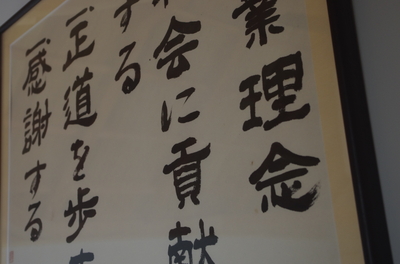 業理念
会に貢献
する
一正道を歩
一感謝する